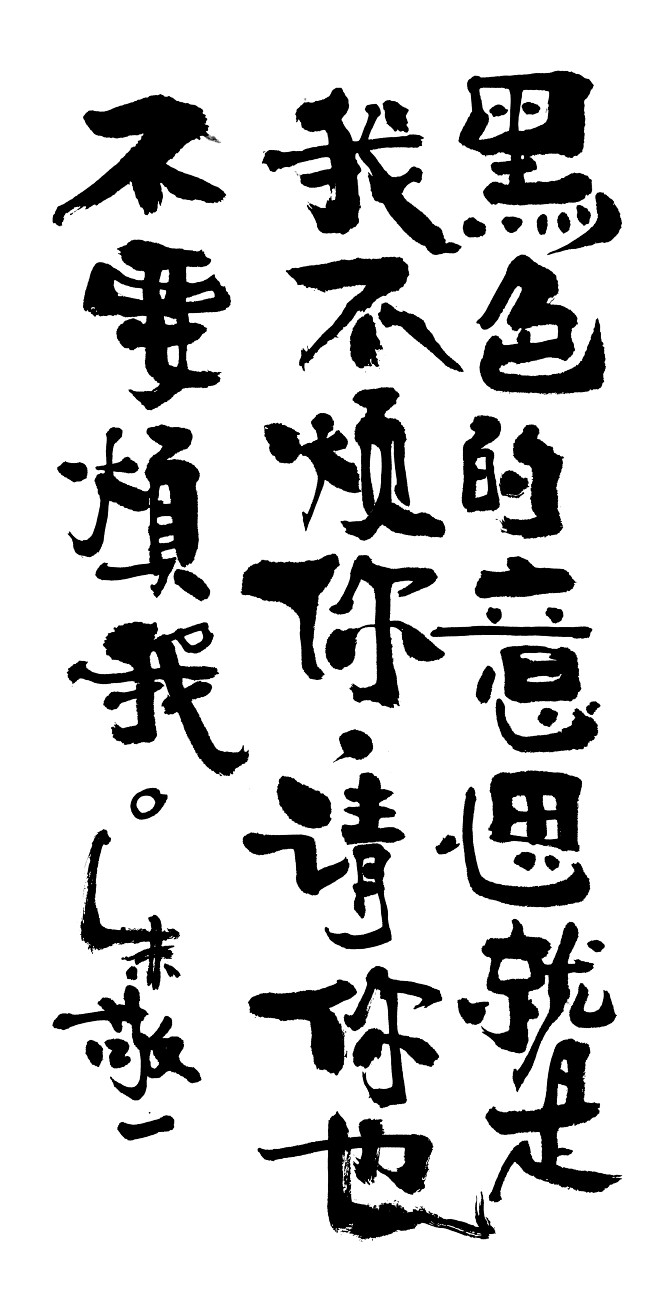 黑色的意思就是
我不烦你，请你也
不要煩我。
朱敬一